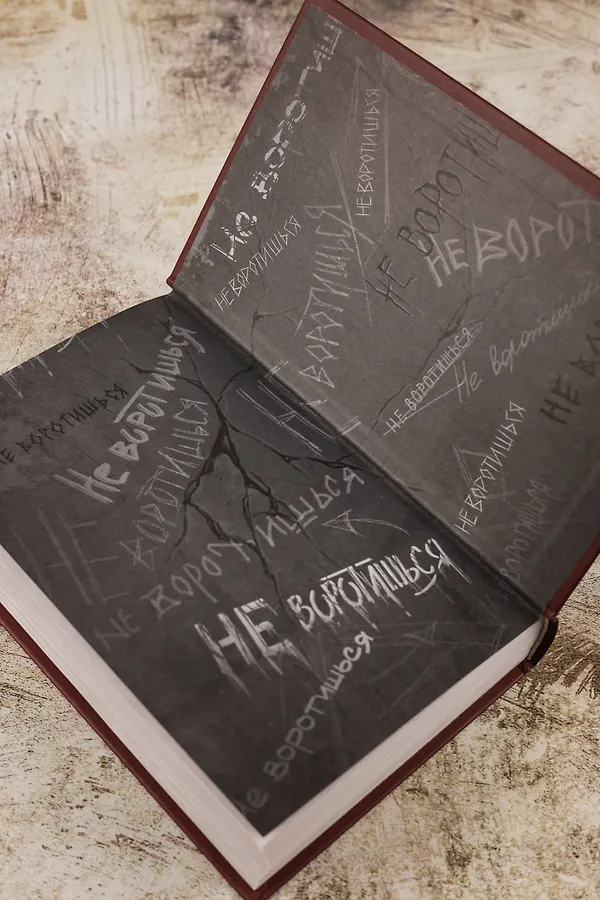 Не вороти
НЕ ВОРОТИШЬСЯ
НЕ ВОРОТИШЬСЯ
НЕ ВОРОТИШЬСЯ
НЕ ВОРОТИ
НЕ ВОРОТ
Не воротишься
НЕ ВОРОТИШЬСЯ
НЕ ВО
НЕ ВОРОТИШЬСЯ
ВОРОТИШЬСЯ
НЕ ВОРОТИШЬСЯ
Не ВОРОТИШЬСЯ
ВОРОТИШЬСЯ
НЕ
НЕ ВОРОТИШЬСЯ
НЕ ВОРОТИШЬСЯ
Не ВОРОТИШЬСЯ